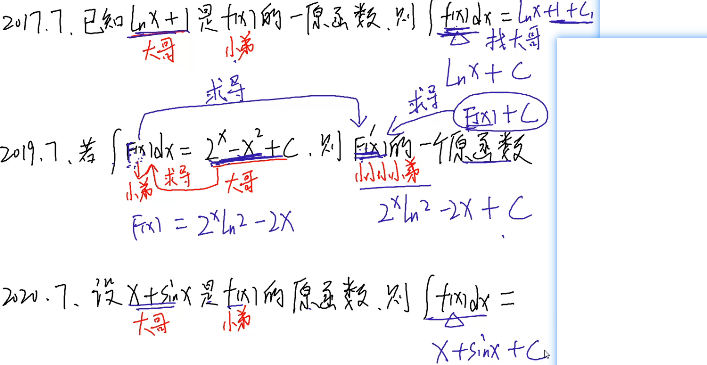 2017.7、已知lnx+1是f(x)的一原函数、则∫f(x)dx=lnx+1+C,
大哥 小弟 找大哥
lnx+C
求导 求导 F(x)+C
2019.7、若∫F(x)dx=2^x-x^2+C、则F'(x)的一个原函数
小弟 求导 大哥 小小小小弟
F(x)=2^xln2-2x 2^xln2-2x+C
2020.7、设x+sinx是f(x)的原函数、则∫f(x)dx=
大哥 小弟
x+sinx+C